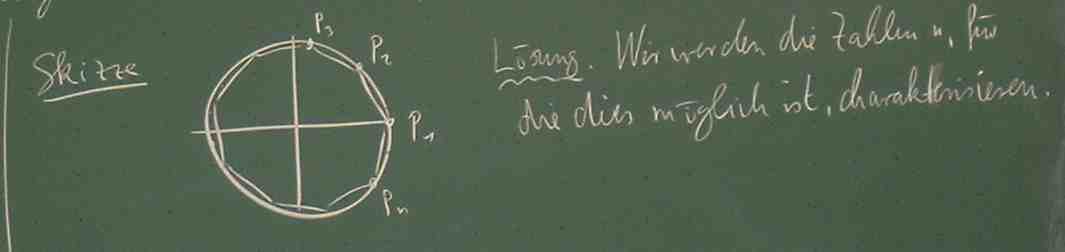 Skizze
P₃
P₂
P₁
Pₙ
Lösung. Wir werden die Zahlen n, für
die dies möglich ist, charakterisieren.